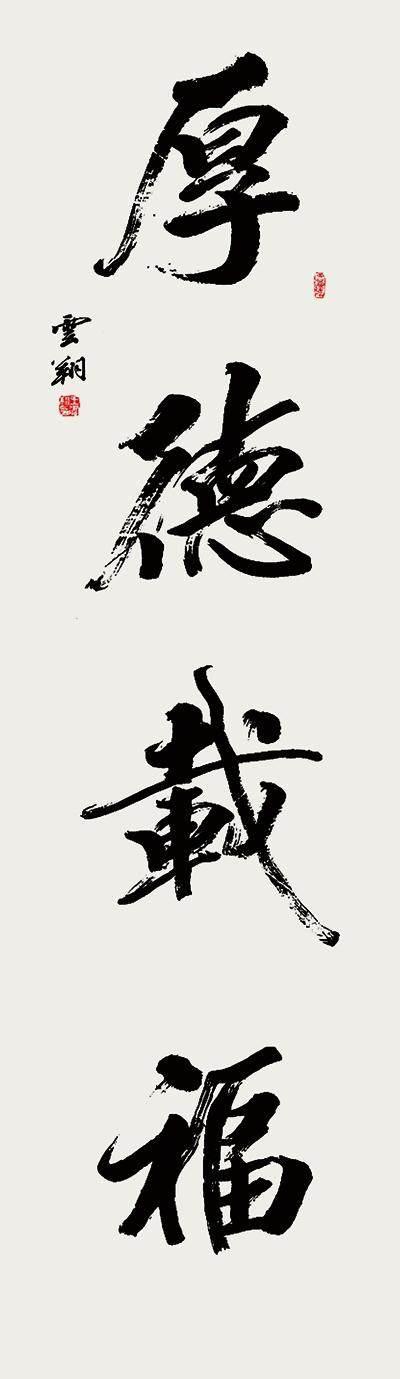 厚德載福
雲翔